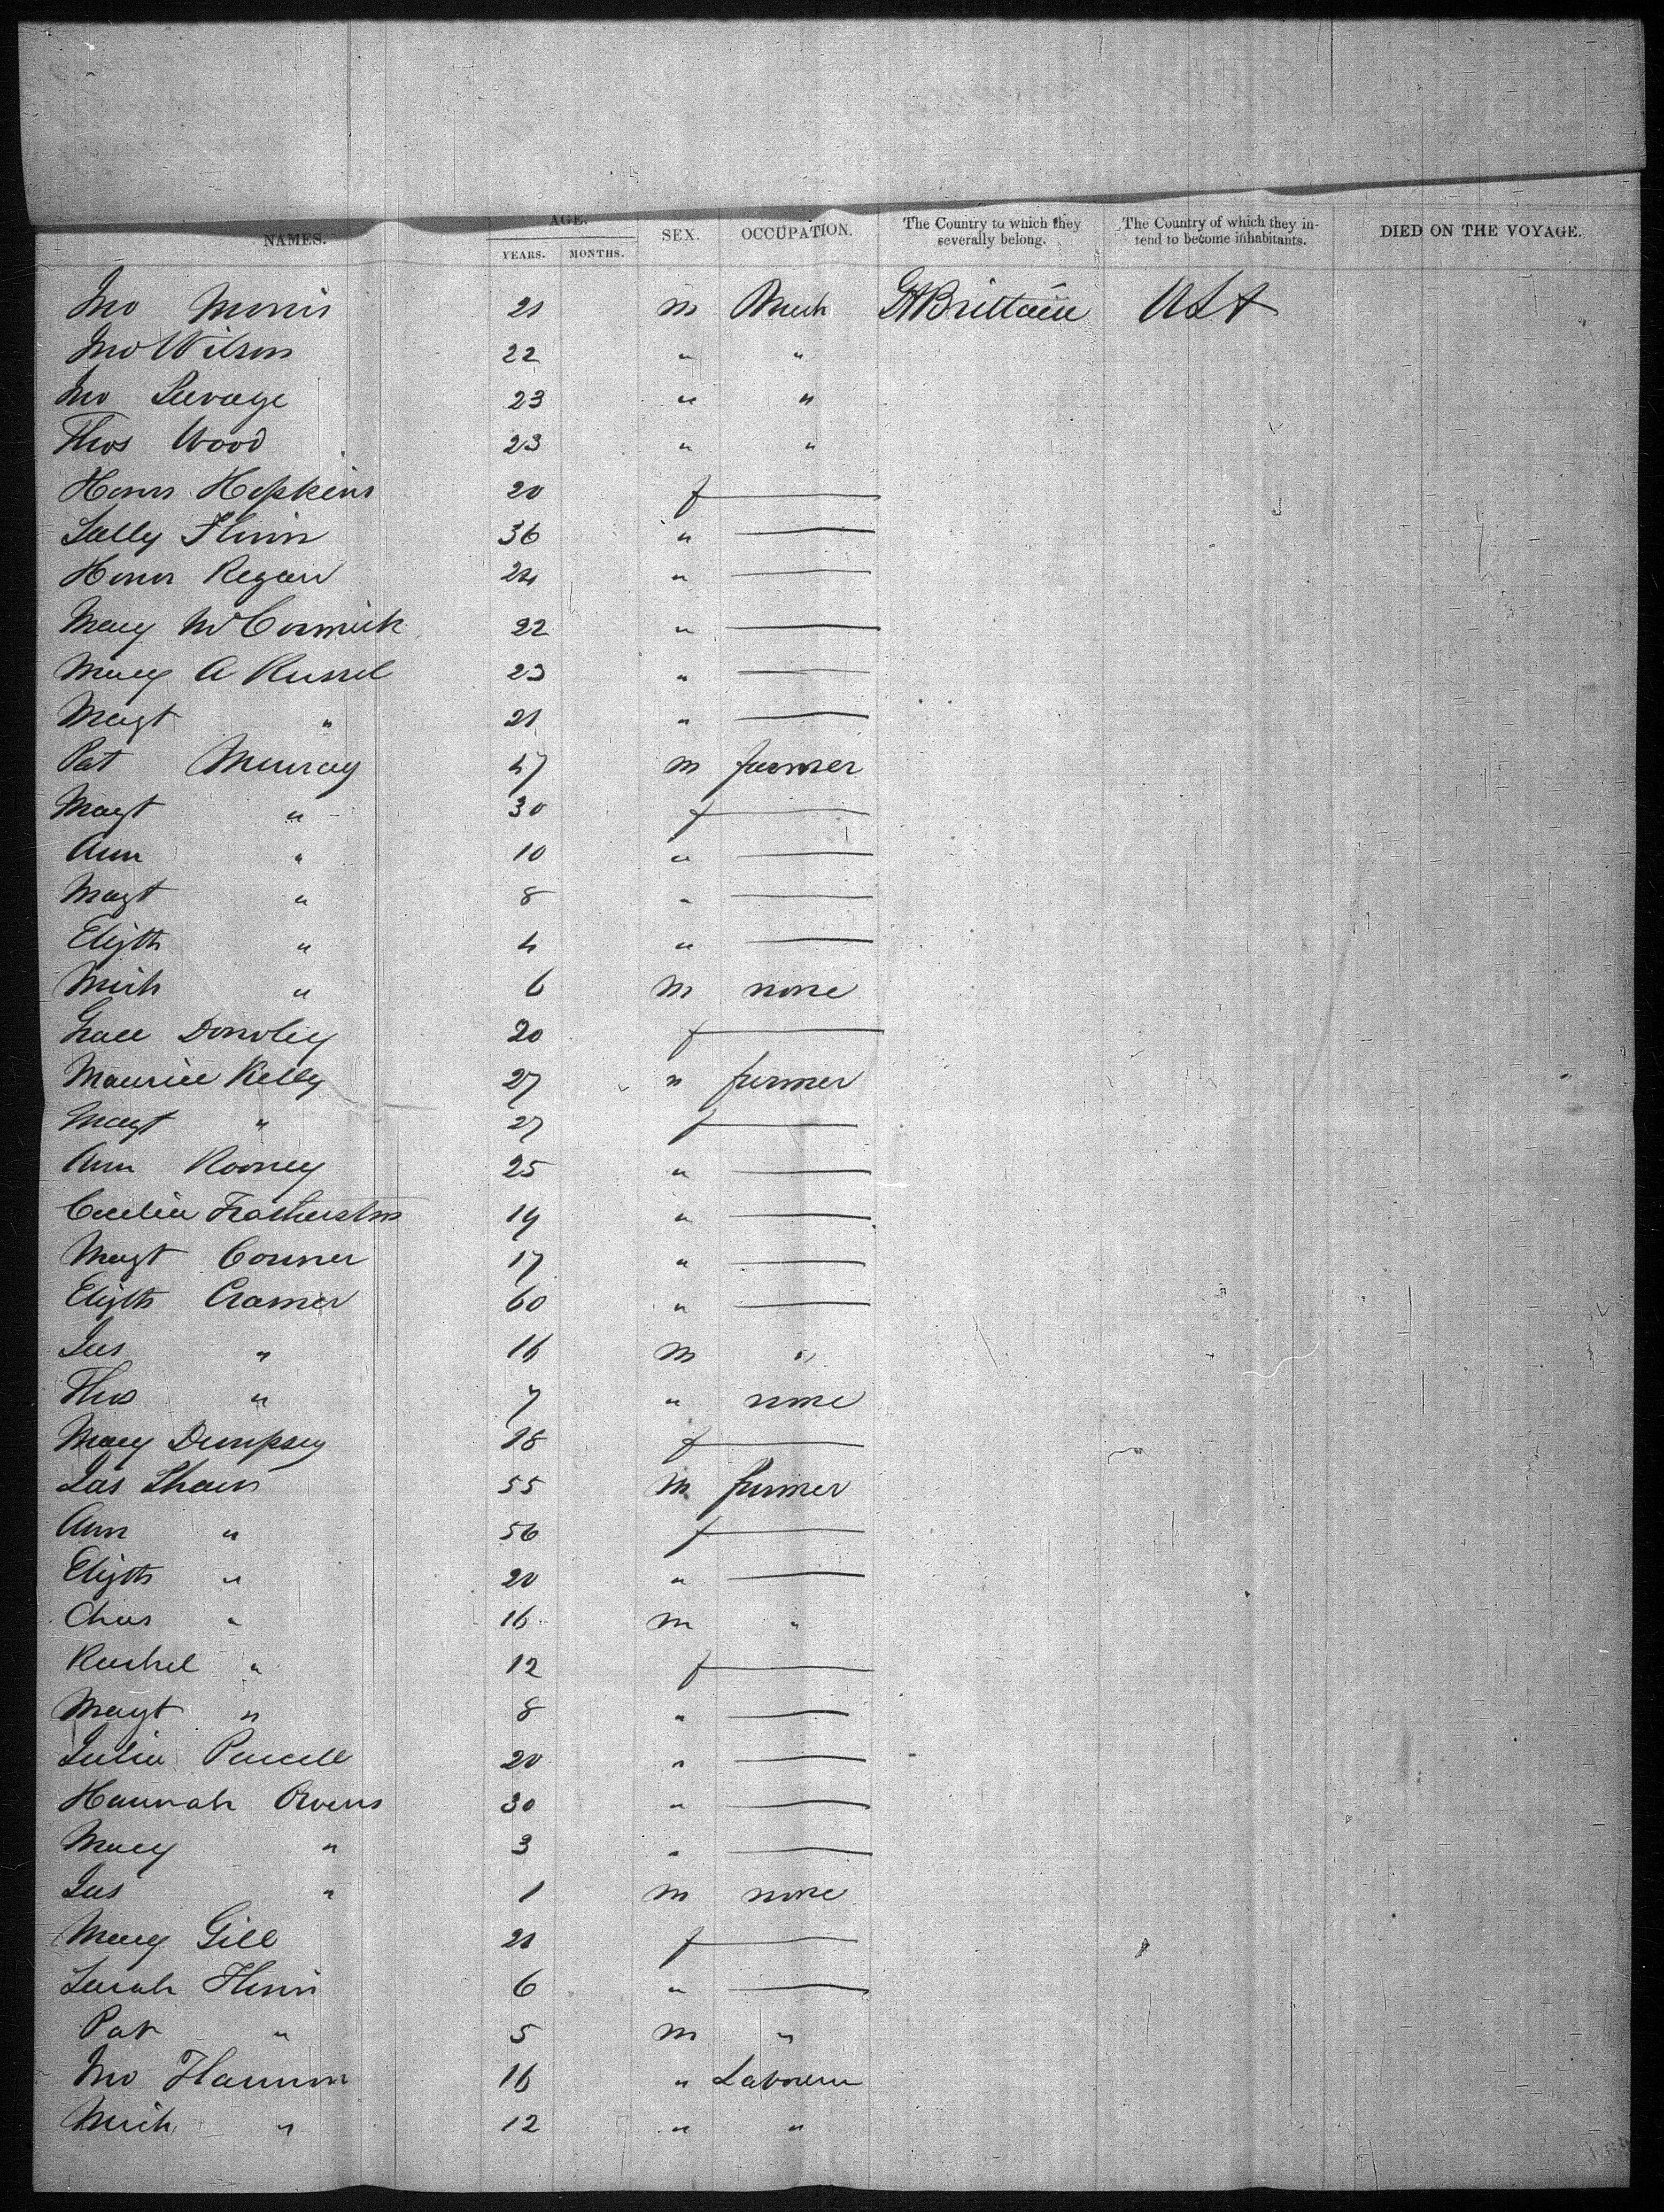 NAMES. AGE. YEARS. MONTHS. SEX. OCCUPATION. The Country to which they severally belong. The Country of which they intend to become inhabitants. DIED ON THE VOYAGE.
Jno Morris 21 m Mech Gt Brittain USA
Jno Wilson 22 " "
Jno Savage 23 " "
Thos Wood 23 " "
Honor Hopkins 20 f —
Sally Flinn 36 " —
Honor Regan 24 " —
Mary McCormick 22 " —
Mary A Russel 23 " —
Magt " 21 " —
Pat Murray 47 m farmer
Magt " 30 f —
Ann " 10 " —
Magt " 8 " —
Elizth " 4 " —
Mich " 6 m none
Grace 20 f —
Maurice Kelly 27 " farmer
Magt " 27 f —
Ann Rooney 25 " —
Cecelia 19 " —
Magt Conner 17 " —
Elizth Cramer 60 " —
Jas " 16 m "
Thos " 7 " none
Mary Dempsey 18 f —
Jas 55 m farmer
Ann " 56 f —
Elizth " 20 " —
Chas " 16 m "
Rachel " 12 f —
Magt " 8 " —
Julia Purcell 20 " —
Hannah Owens 30 " —
Mary " 3 " —
Jas " 1 m none
Mary Gill 21 f —
Sarah Flinn 6 " —
Pat " 5 m "
Jno Hannon 16 " Laborer
Mich " 12 " "